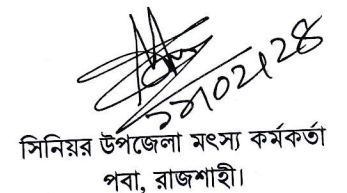 সিনিয়র উপজেলা মৎস্য কর্মকর্তা
পবা, রাজশাহী।